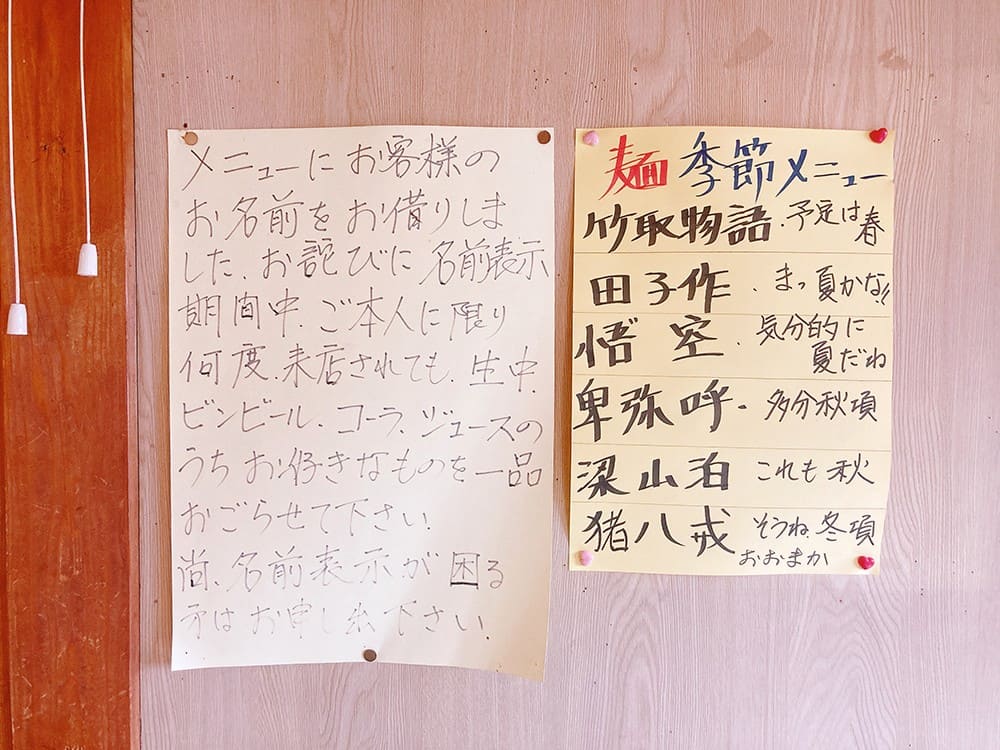 メニューにお客様の
お名前をお借りしま
した、お詫びに名前表示
期間中、ご本人に限り
何度、来店されても、生中、
ビンビール、コーラ、ジュースの
うちお好きなものを一品
おごらせて下さい。
尚、名前表示が困る
方はお申し出下さい。
麺季節メニュー
竹取物語、予定は春
田子作、まっ夏かな!!
悟空、気分的に
夏だね
卑弥呼、多分秋項
梁山泊 これも秋
猪八戒 そうね、冬項
おおまか